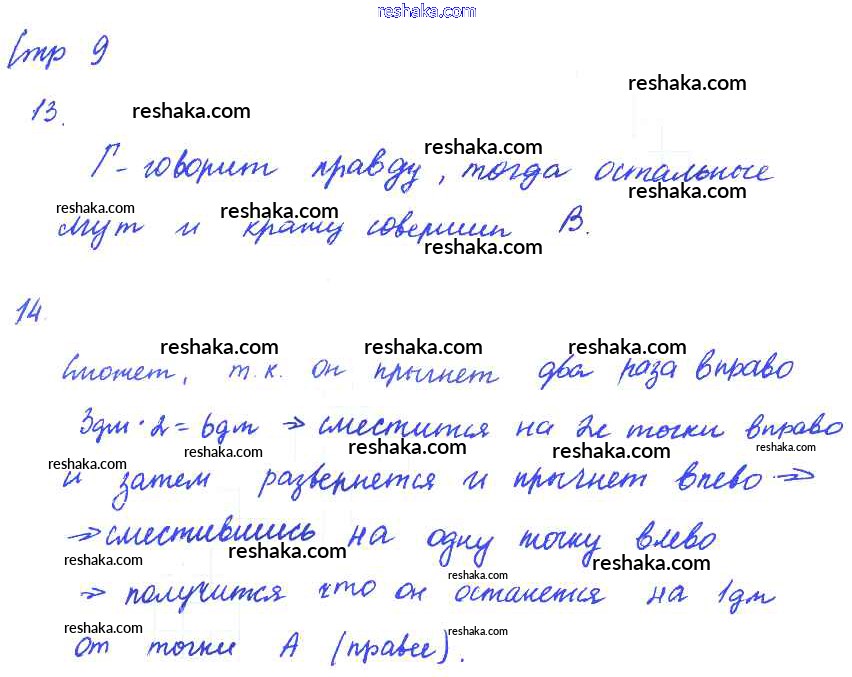 reshaka.com
Стр 9
13. reshaka.com reshaka.com
Г - говорит правду, тогда остальные
reshaka.com reshaka.com reshaka.com reshaka.com
лгут и кражу совершил В.
reshaka.com
14
reshaka.com reshaka.com reshaka.com
Сможет, т.к. он прыгнет два раза вправо
3дм · 2 = 6дм ⇒ сместится на 2е точки вправо
reshaka.com reshaka.com reshaka.com reshaka.com reshaka.com
и затем развернется и прыгнет влево ⇒
⇒ сместившись на одну точку влево
reshaka.com reshaka.com reshaka.com reshaka.com
⇒ получится что он останется на 1дм
reshaka.com reshaka.com
от точки А (правее).